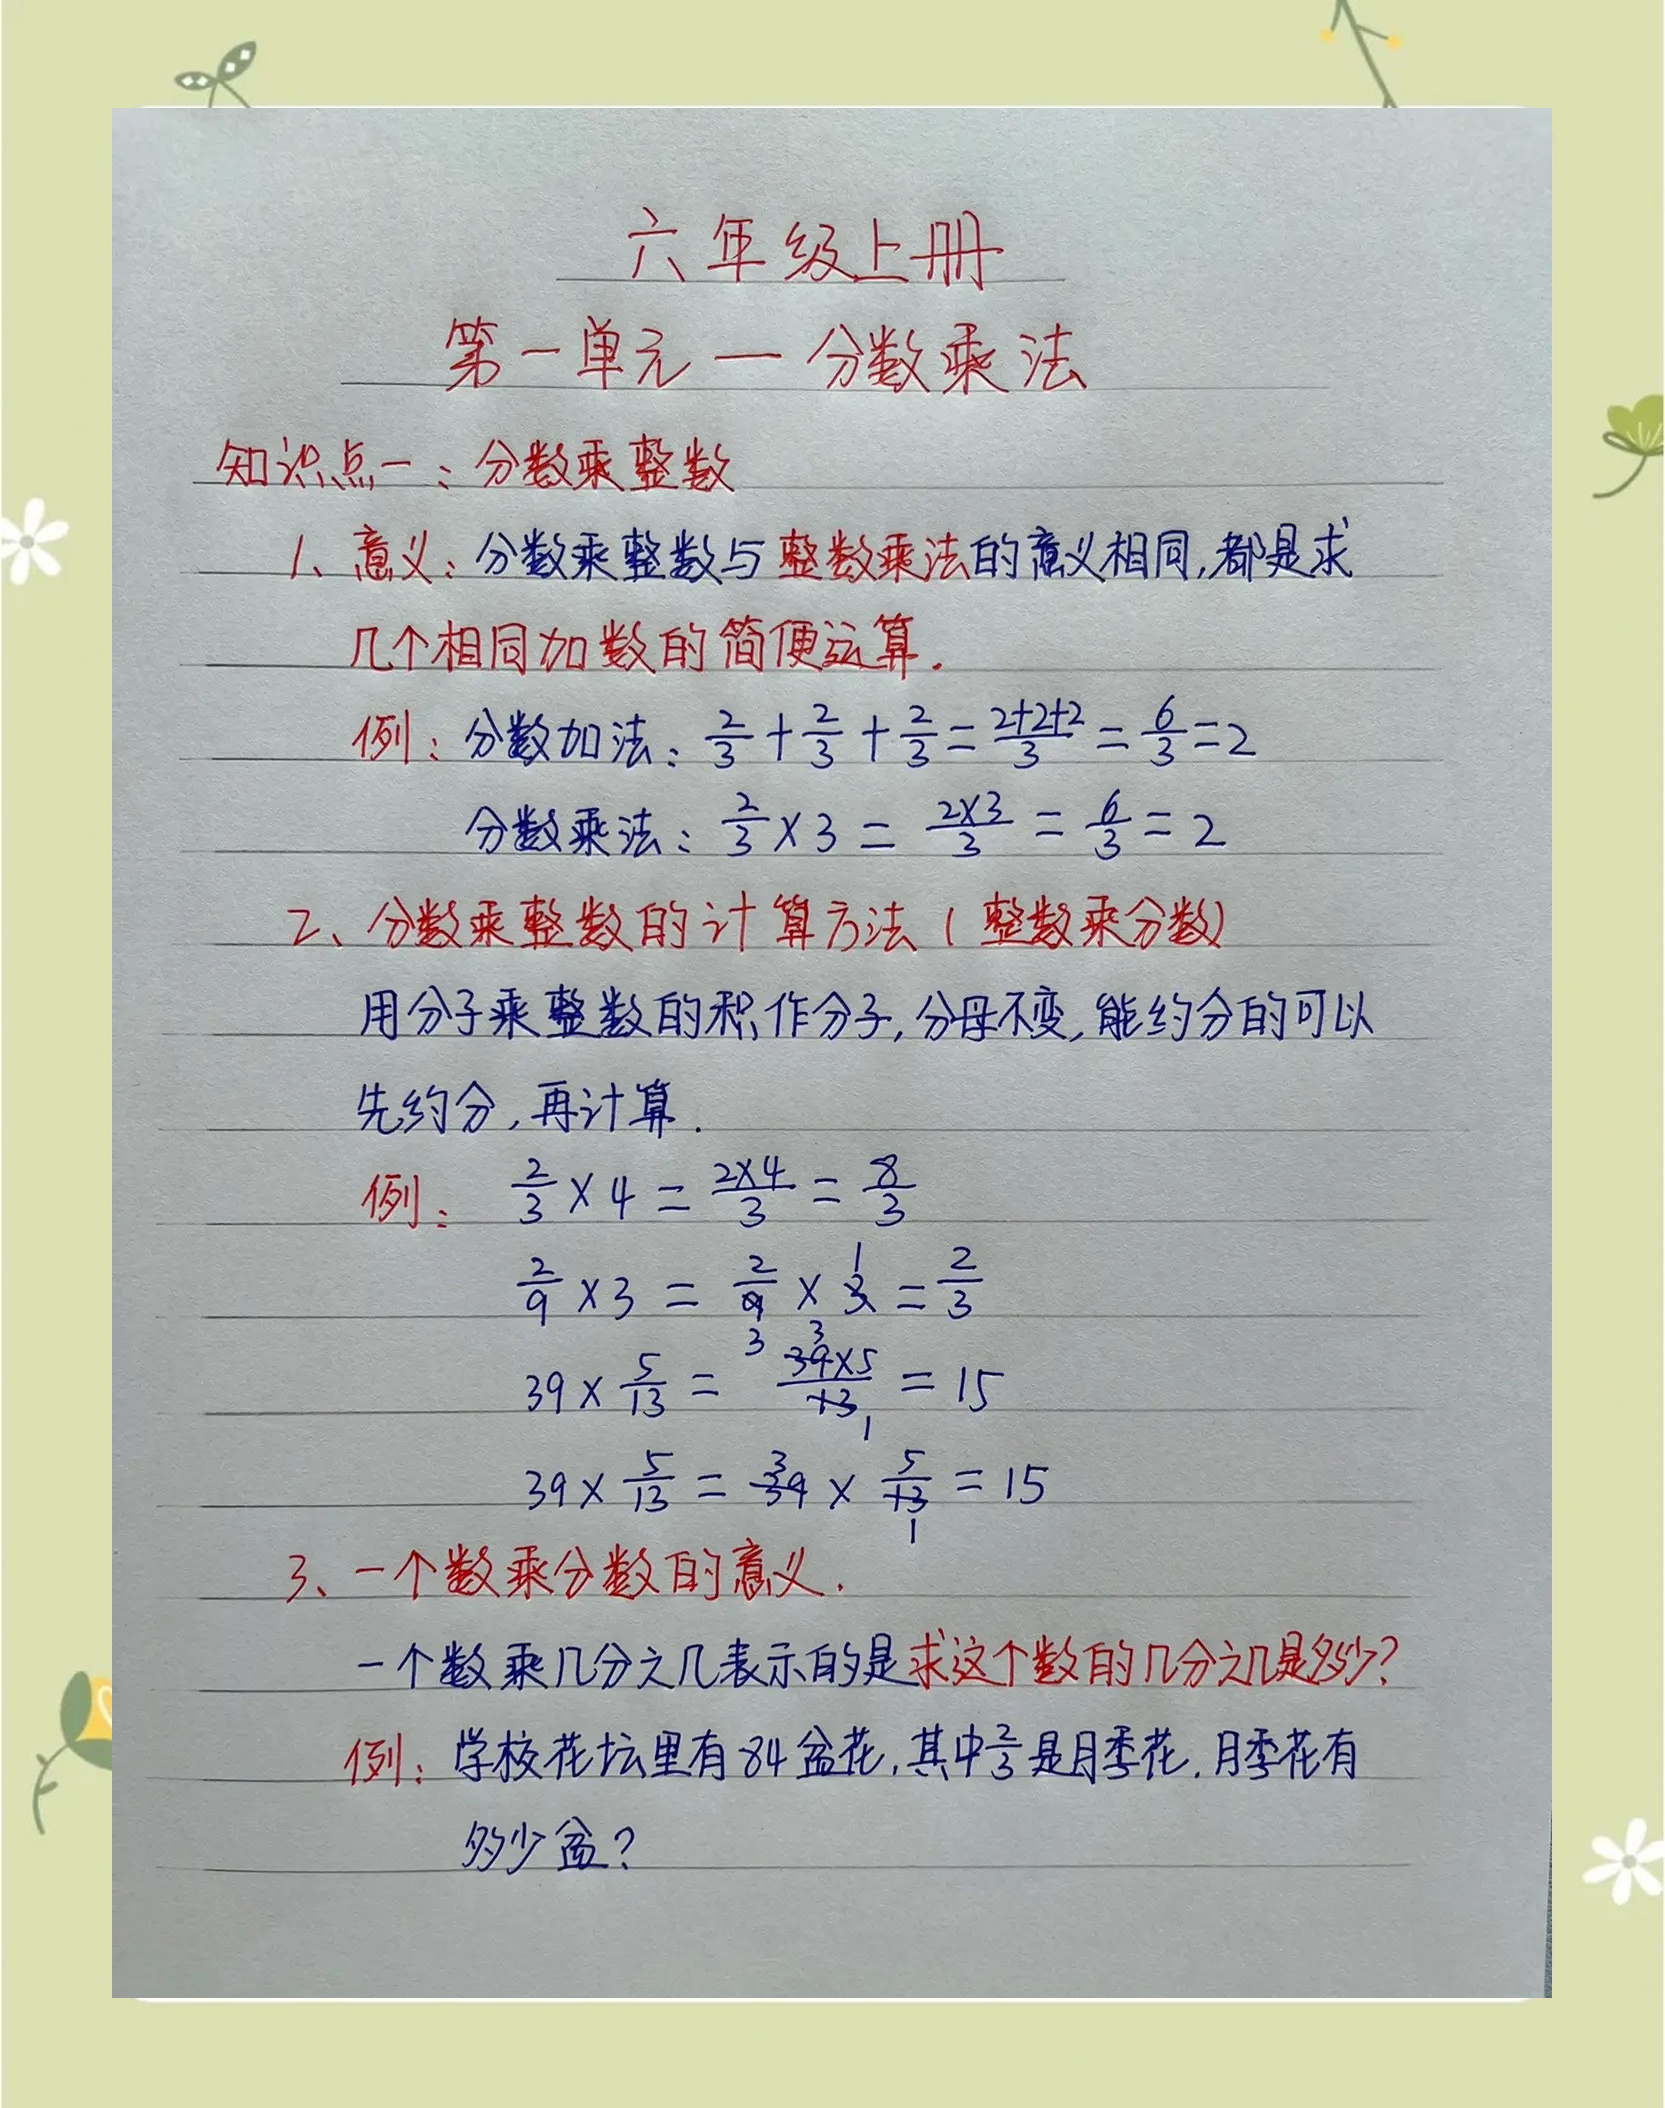 六年级上册
第一单元一分数乘法
知识点一：分数乘整数
1、意义：分数乘整数与整数乘法的意义相同,都是求
几个相同加数的简便运算.
例：分数加法：2/3+2/3+2/3=(2+2+2)/3=6/3=2
分数乘法：2/3×3=(2×3)/3=6/3=2
2、分数乘整数的计算方法(整数乘分数)
用分子乘整数的积作分子,分母不变,能约分的可以
先约分,再计算.
例：2/3×4=(2×4)/3=8/3
1
2/9×3=2/9×3=2/3
3 3
39×5/13=(39×5)/13=15
1
3
39×5/13=39×5/13=15
1
3、一个数乘分数的意义.
一个数乘几分之几表示的是求这个数的几分之几是多少?
例：学校花坛里有84盆花,其中2/3是月季花.月季花有
多少盆?